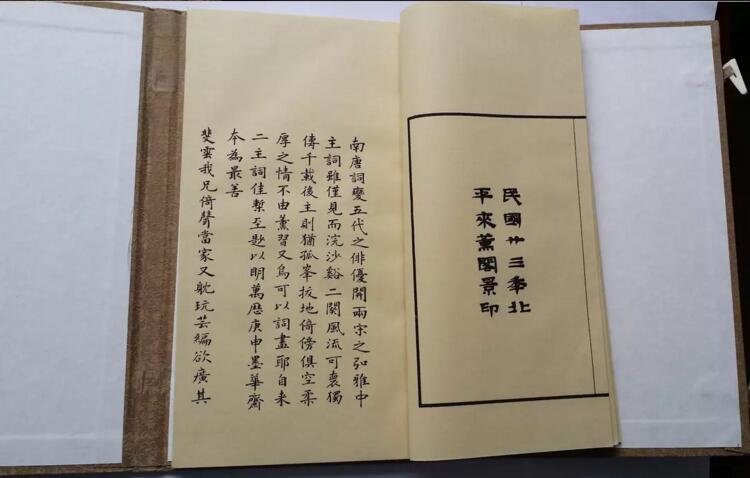 民國卅三年北
平來薰閣景印
南唐詞變五代之俳優開兩宋之弘雅中
主詞雖僅見而浣沙谿二闋風流可裹獨
傳千載後主則猶孤峯拔地倚傍俱空柔
厚之情不由薰習又烏可以詞畫耶自来
二主詞佳槧至尠以明萬厯庚申墨華齋
本為最善
斐雲我兄倚聲當家又躭玩芸編欲廣其